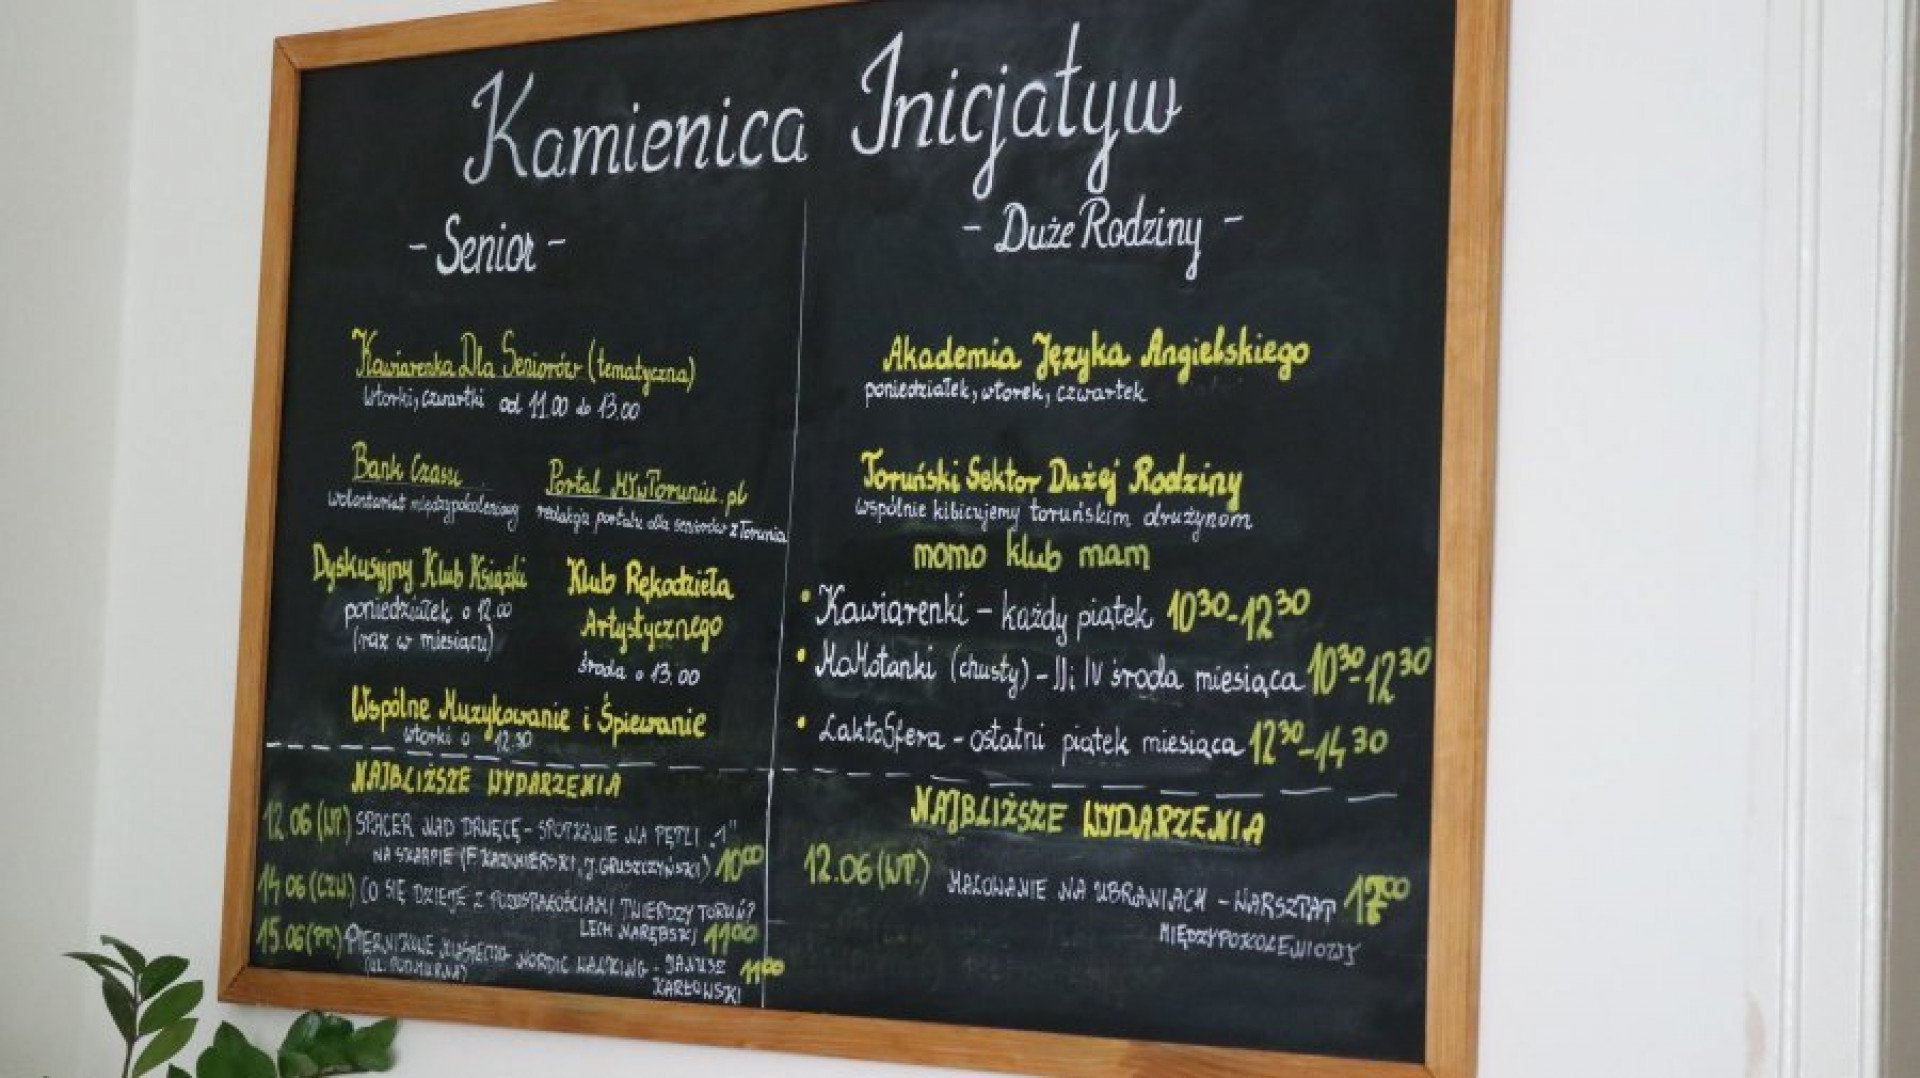 Kamienica Inicjatyw
- Senior -
Kawiarenka Dla Seniorów (tematyczna)
wtorki, czwartki od 11.00 do 13.00
Bank Czasu
wolontariat międzypokoleniowy
Portal MYwToruniu.pl
redakcja portalu dla seniorów z Torunia
Dyskusyjny Klub Książki
poniedziałek o 12.00
(raz w miesiącu)
Klub Rękodzieła
Artystycznego
środa o 13.00
Wspólne Muzykowanie i Śpiewanie
wtorki o 12.30
NAJBLIŻSZE WYDARZENIA
12.06 (WT.) SPACER NAD DRWĘCĘ - SPOTKANIE NA PĘTLI „1"
NA SKARPIE (F. KAZIMIERSKI, J. GRUSZCZYŃSKI) 10⁰⁰
14.06 (CZW.) CO SIĘ DZIEJE Z POZOSTAŁOŚCIAMI TWIERDZY TORUŃ?
LECH NARĘBSKI 11⁰⁰
15.06 (PT.) PIERNIKOWE MIASTECZKO NORDIC WALKING - JANUSZ 11⁰⁰
(UL. PODMURNA) KARŁOWSKI
- Duże Rodziny -
Akademia Języka Angielskiego
poniedziałek, wtorek, czwartek
Toruński Sektor Dużej Rodziny
wspólnie kibicujemy toruńskim drużynom
momo klub mam
• Kawiarenki - każdy piątek 10³⁰-12³⁰
• MoMotanki (chusty) - II i IV środa miesiąca 10³⁰-12³⁰
• LaktoSfera - ostatni piątek miesiąca 12³⁰-14³⁰
NAJBLIŻSZE WYDARZENIA
12.06 (WT.) MALOWANIE NA UBRANIACH - WARSZTAT 17⁰⁰
MIĘDZYPOKOLENIOWY